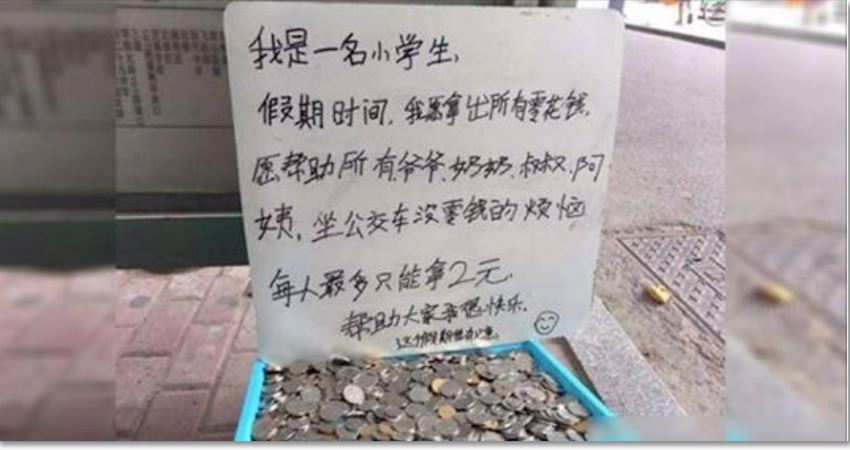 我是一名小学生,
假期时间,我愿拿出所有零花钱,
愿帮助所有爷爷、奶奶、叔叔、阿
姨,坐公交车没零钱的烦恼
每人最多只能拿2元,
帮助大家我很快乐,
这个假期很有义意。